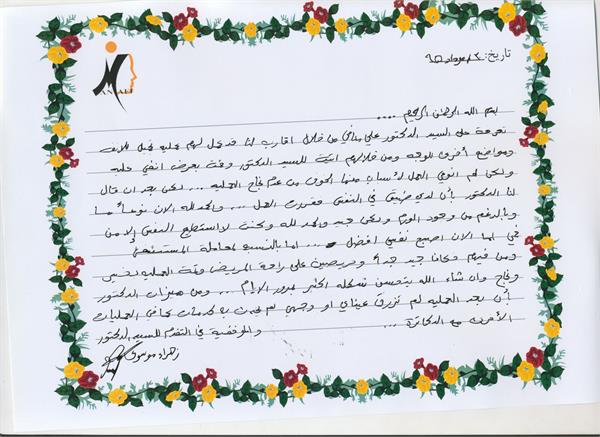 MANAFI
تاريخ: ٢/مرداد/٩٥
بسم الله الرحمن الرحيم ....
تعرفت على السيد الدكتور علي منافي من خلال اقارب لنا قد عمل لهم عملية تجميل للانف
ومواضع أخرى للوجه ومن خلالهم اتيت للسيد الدكتور وقمت بعرض انفي عليه
ولكن لم انوي العمل لأسباب منها الخوف من عدم نجاح العملية ... لكن بعد ان قال
لنا الدكتور بأن لدي ضيق في التنفس فقررت العمل ... والحمد لله الان نوعاً ما
وبالرغم من وجود الورم ولكن جيد والحمد لله وكنت لا استطيع التنفس إلا من
فمي اما الان اصبح نفسي افضل ... اما بالنسبه لمعاملة المستشفى
ومن فيهم وكانا جيد جداً وحريصين على راحة المريض وقمة العملية
ونجاح وان شاء الله يتحسن شكله اكثر بمرور الايام ... ومن ميزات الدكتور
أن بعد العملية لم تزرق عيناي او وجهي لم تحدث به كدمات كما في العمليات
الأخرى مع الدكاترة ... والموفقية في التقدم للسيد الدكتور
زهراء موسوي